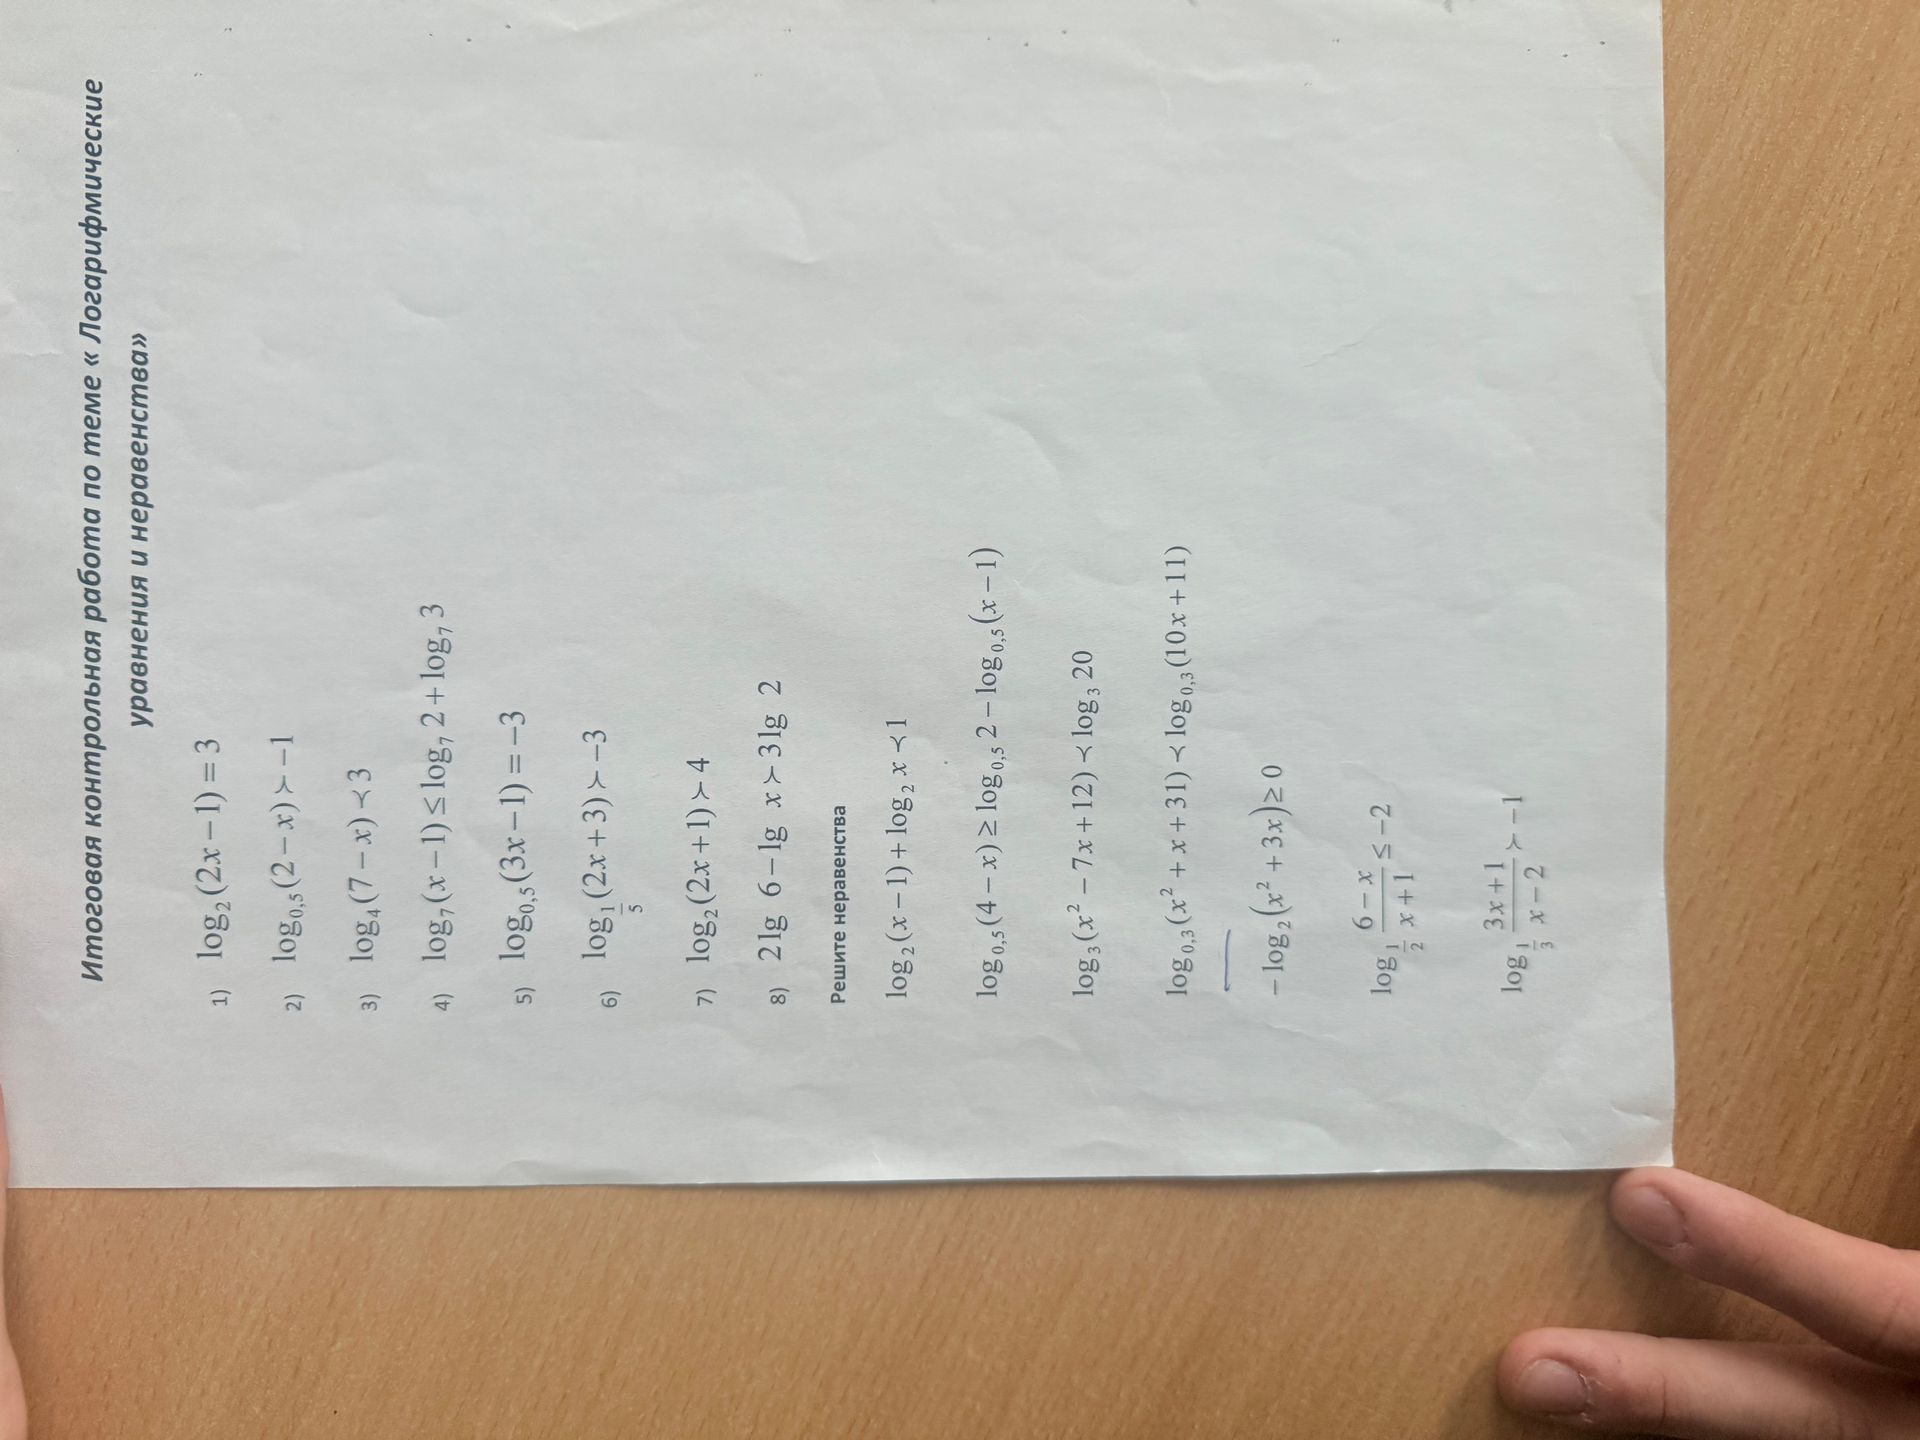 Итоговая контрольная работа по теме « Логарифмические
уравнения и неравенства»
1) log₂(2x − 1) = 3
2) log₀,₅(2 − x) ≻ −1
3) log₄(7 − x) ≺ 3
4) log₇(x − 1) ≤ log₇ 2 + log₇ 3
5) log₀,₅(3x − 1) = −3
6) log_{1/5}(2x + 3) ≻ −3
7) log₂(2x + 1) ≻ 4
8) 2 lg 6 − lg x ≻ 3 lg 2
Решите неравенства
log₂(x − 1) + log₂ x ≺ 1
log₀,₅(4 − x) ≥ log₀,₅ 2 − log₀,₅(x − 1)
log₃(x² − 7x + 12) ≺ log₃ 20
log₀,₃(x² + x + 31) ≺ log₀,₃(10x + 11)
− log₂(x² + 3x) ≥ 0
log_{1/2} \frac{6 − x}{x + 1} ≤ −2
log_{1/3} \frac{3x + 1}{x − 2} ≻ −1